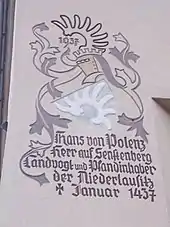 1037
Hans von Polenz
Herr auf Senftenberg
Landvogt und Pfandinhaber
der Niederlausitz
✝ Januar 1437